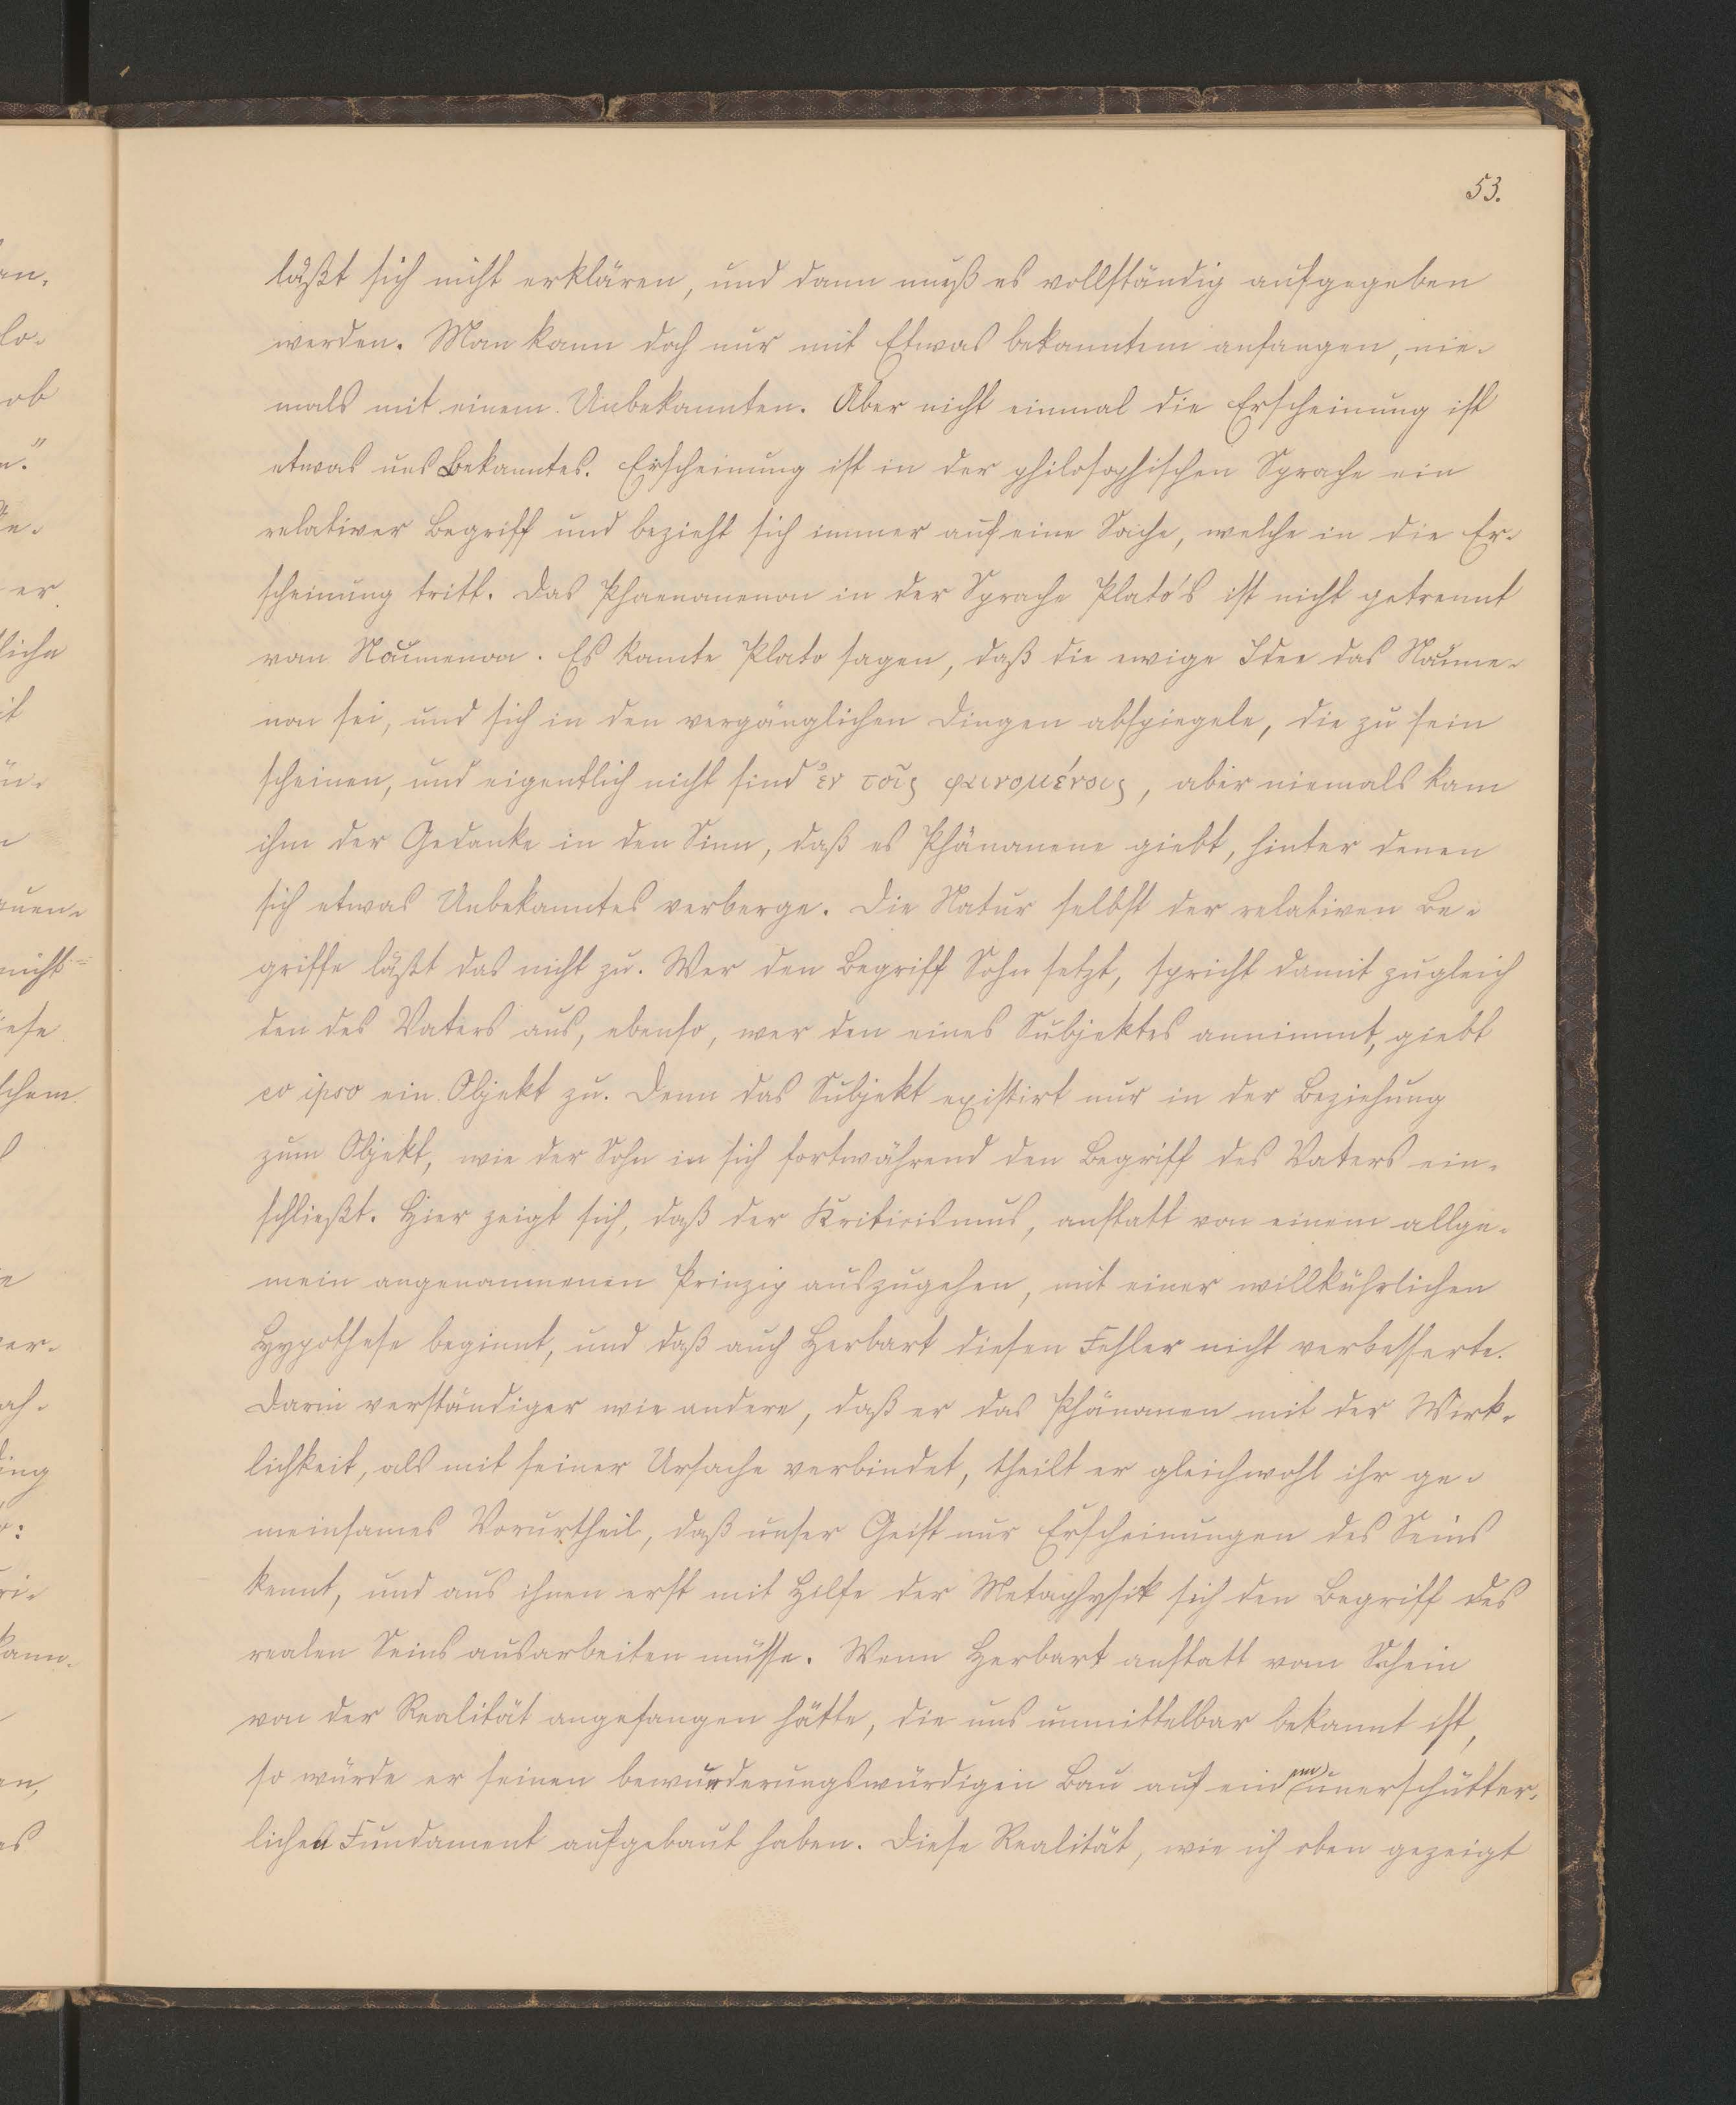 53.
läßt sich nicht erklären, und dann muß es vollständig aufgegeben
werden. Man kann doch nur mit Etwas bekanntem anfangen, nie-
mals mit einem Unbekannten. Aber nicht einmal die Erscheinung ist
etwas uns Bekanntes. Erscheinung ist in der philosophischen Sprache ein
relativer Begriff und bezieht sich immer auf eine Sache, welche in die Er-
scheinung tritt. Das Phaenomenon in der Sprache Plato's ist nicht getrennt
vom Noumenon. Es konnte Plato sagen, daß die ewige Idee das Noume-
non sei, und sich in den vergänglichen Dingen abspiegele, die zu sein
scheinen, und eigentlich nicht sind ἐν τοῖς φαινομένοις, aber niemals kam
ihm der Gedanke in den Sinn, daß es Phänomene giebt, hinter denen
sich etwas Unbekanntes verberge. Die Natur selbst der relativen Be-
griffe läßt das nicht zu. Wer den Begriff Sohn setzt, spricht damit zugleich
den des Vaters aus, ebenso, wer den eines Subjektes annimmt, giebt
eo ipso ein Objekt zu. Denn das Subjekt existirt nur in der Beziehung
zum Objekt, wie der Sohn in sich fortwährend den Begriff des Vaters ein-
schließt. Hier zeigt sich, daß der Kriticismus, anstatt von einem allge-
mein angenommenen Prinzip auszugehen, mit einer willkührlichen
Hypothese beginnt, und daß auch Herbart diesen Fehler nicht verbesserte.
Darin verständiger wie andere, daß er das Phänomen mit der Wirk-
lichkeit, als mit seiner Ursache verbindet, theilt er gleichwohl ihr ge-
meinsames Vorurtheil, daß unser Geist nur Erscheinungen des Seins
kennt, und aus ihnen erst mit Hilfe der Metaphysik sich den Begriff des
realen Seins ausarbeiten müsse. Wenn Herbart anstatt vom Schein
von der Realität angefangen hätte, die uns unmittelbar bekannt ist,
so würde er seinen bewunderungswürdigen Bau auf einem unerschütter-
lichen Fundament aufgebaut haben. Diese Realität, wie ich oben gezeigt